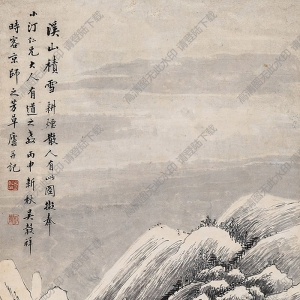 溪山積雪 耕煙散人有此圖擬奉
小汀仁兄大人有道之 丙申新秋吳榖祥
時客京師之芳草廬並記